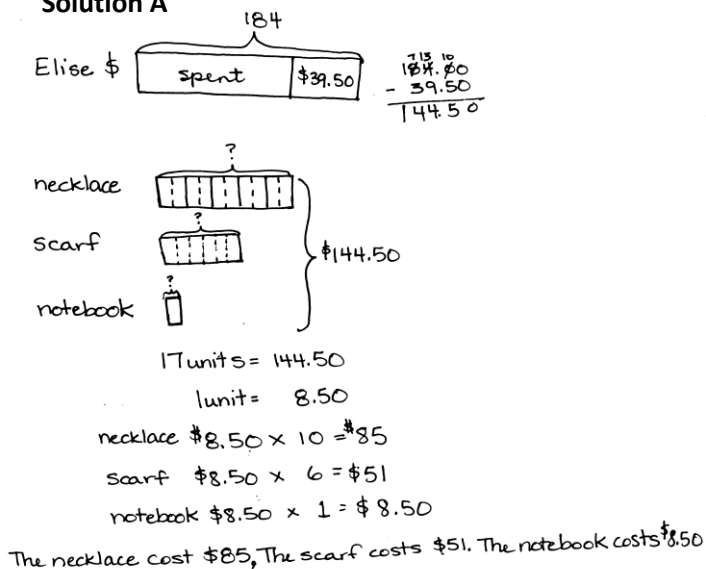 Solution A
184
Elise $ spent $39.50
7 13 10
184.00
- 39.50
144.50
?
necklace
?
scarf
$144.50
?
notebook
17 units = 144.50
1 unit = 8.50
necklace $8.50 × 10 = $85
scarf $8.50 × 6 = $51
notebook $8.50 × 1 = $8.50
The necklace cost $85, The scarf costs $51. The notebook costs $8.50